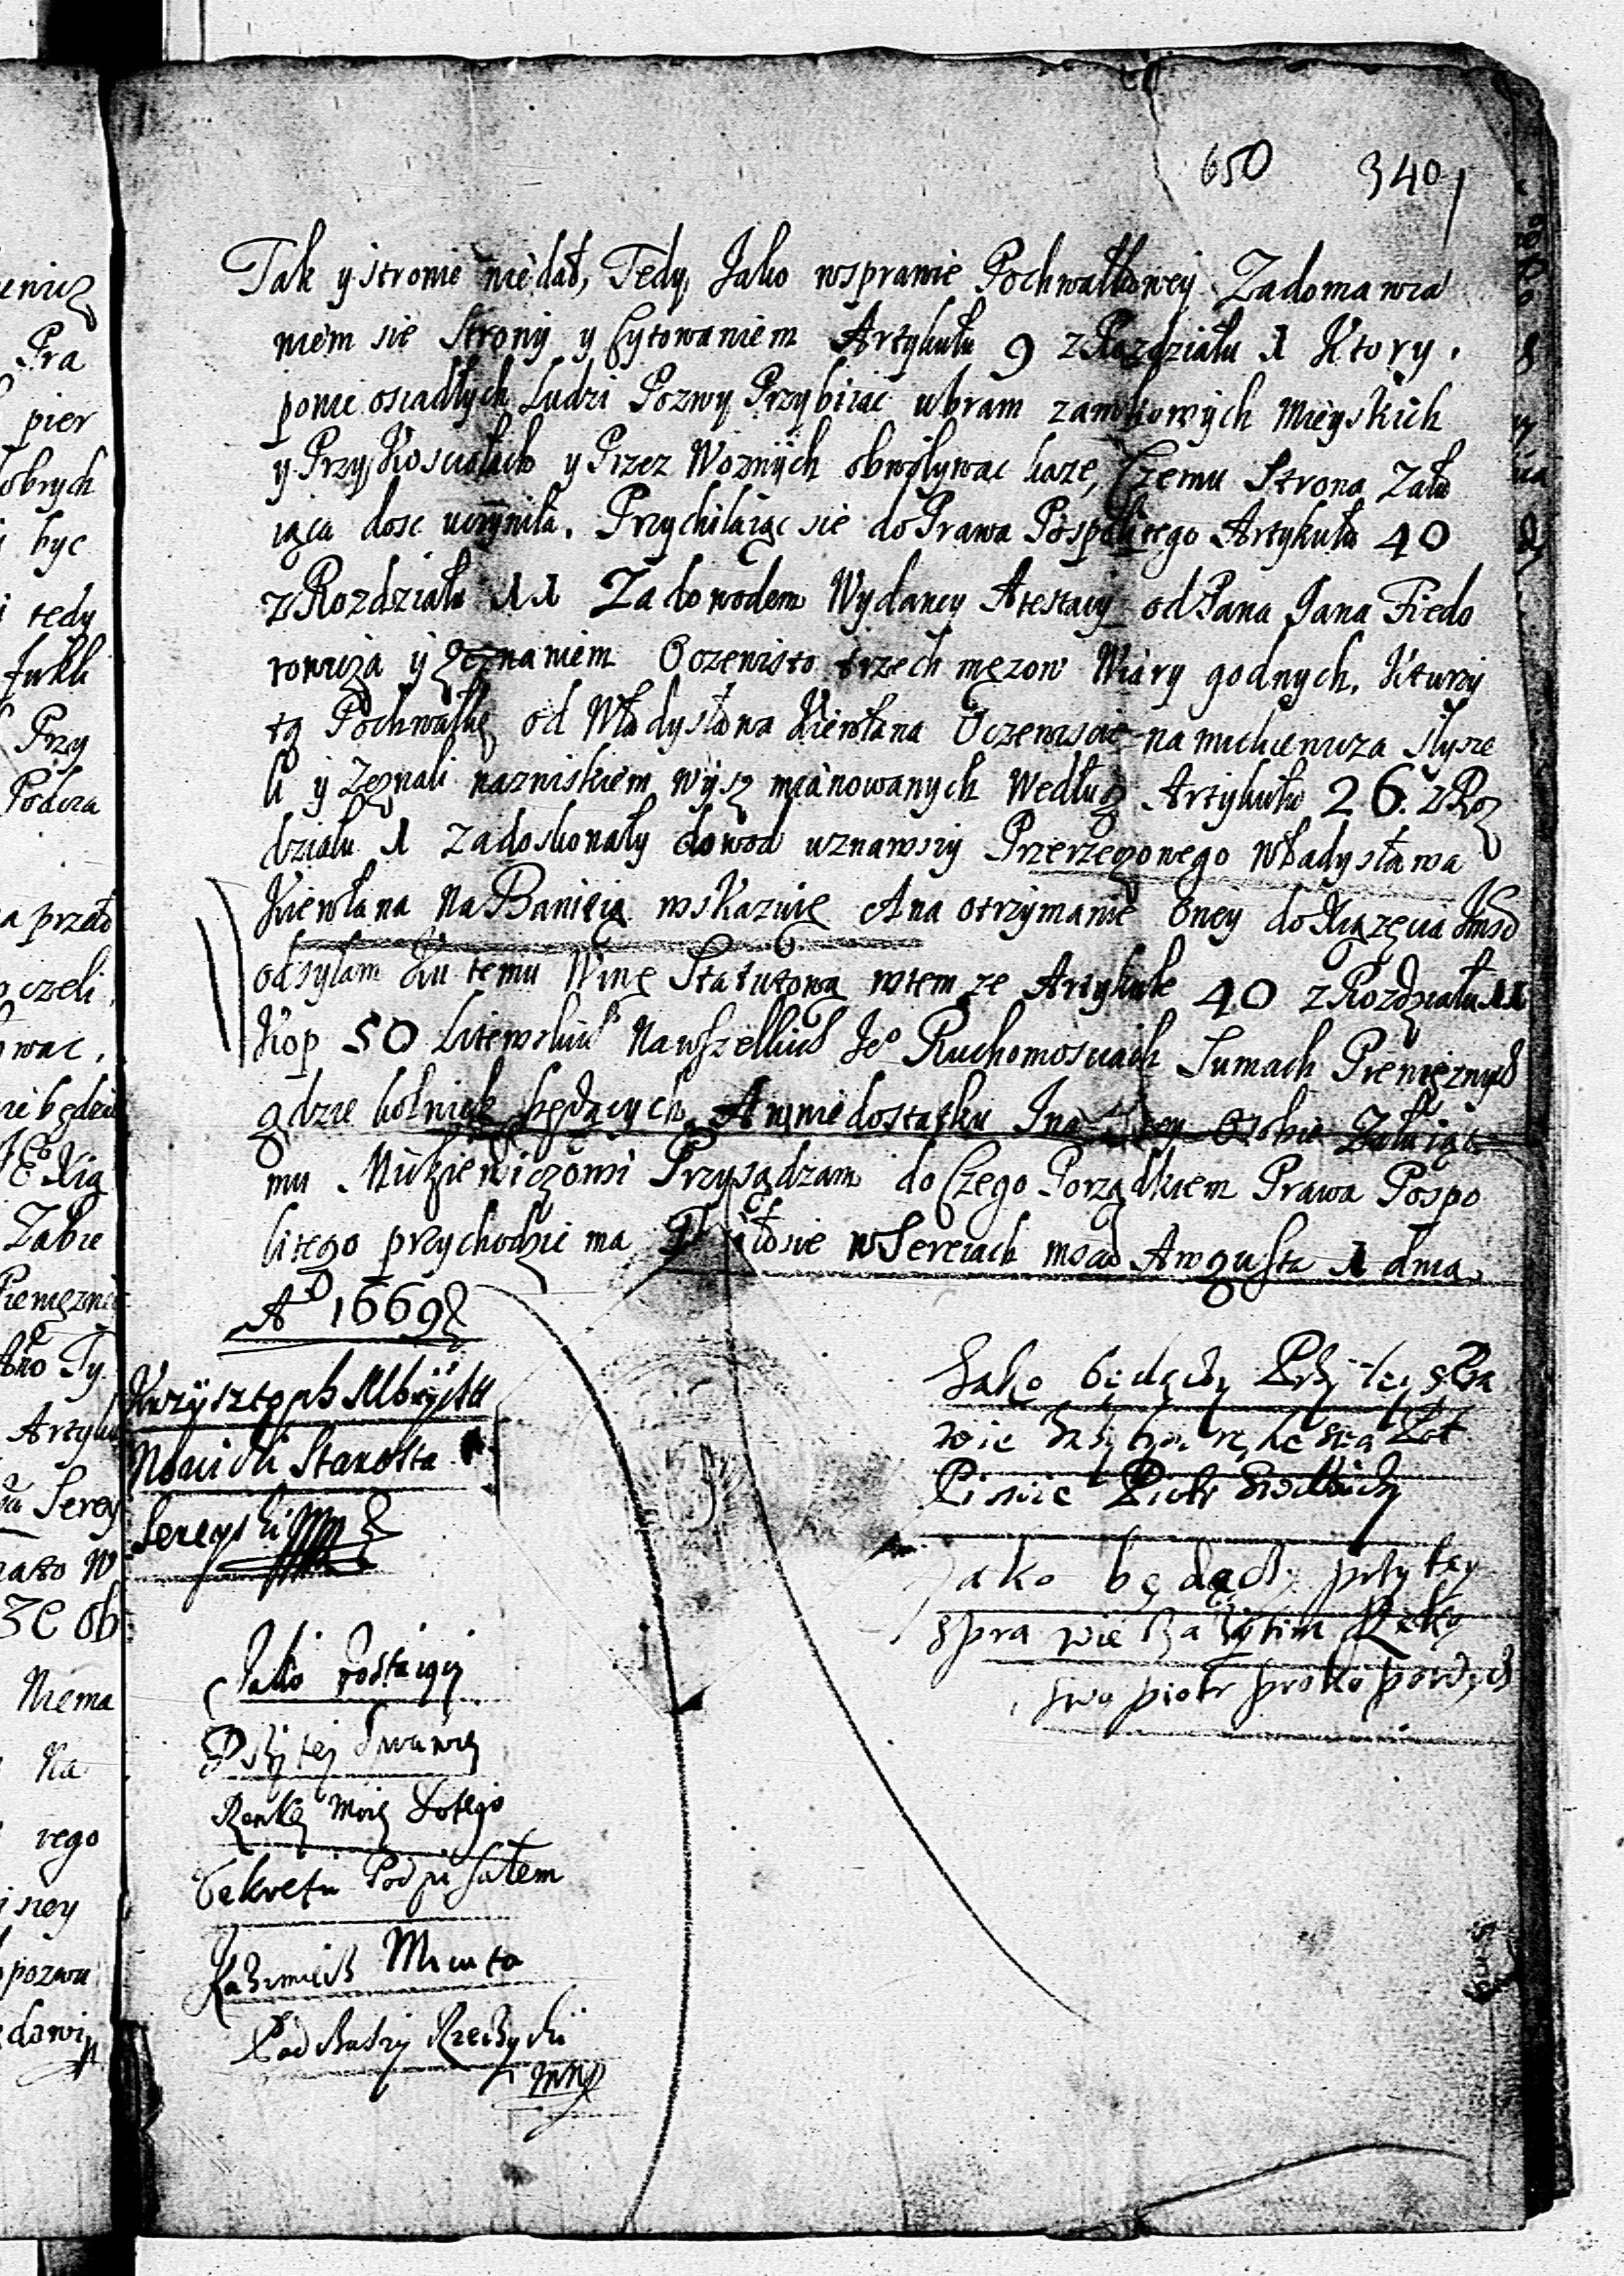 650 340
Tak y stronie nie dał, Tedy Jako w sprawie Pochwałkowey Zadomawia
niem sie Strony y Cytowaniem Artykułu 9 z Rozdziału 1 Ktory
ponie osiadłych Ludzi Pozwy Przybiiac w bram zamkowych Mieyskich
y Przy Kosciołach y Przez Woznych obwoływac kaze, Czemu Strona Zału
iąca dosc uczyniła. Przychilaiąc sie do Prawa Pospolitego Artykułu 40
z Rozdziału 11 Za dowodem Wydaney Atestacy od Pana Jana Fiedo
rowicza y zeznaniem Oczewisto trzech męzow Wiary godnych, Kturzy
tą Pochwałkę od Władysława Kiewłana Oczewiscie na Mickiewicza słysze
li y Zeznali nazwiskiem wysz mianowanych Według Artykułu 26. z Roz
działu 1 za doskonały dowod uznawszy Przerzeczonego Władysława
Kiewłana Na Banicią wskazuię A na otrzymanie Oney do Xiązęcia Jmsci
odsyłam Ku temu Winę Statutową w tem ze Artykule 40 z Rozdziału 11
Kop 50 Litewskich Na wszelkich Je° Ruchomosciach Sumach Pieniężnych
gdzie kolwiek będących A w niedostatku Osobie Załuiące
mu Mickiewiczowi Przysądzam do Czego Porządkiem Prawa Pospo
litego przychodzic ma w Sereiach Augusta 1 dnia
A D 1669
Krzysztoph Albrycht
Nowicki Starosta
Sereyski
Jako będący Przy tey spra
wie rękę swą
Pisuie Piotr
Jako będąch przy tey
spra wie Ręką
swą piotr prokopowicz
Jako zostaiąci
Przy tej Sprawie
Renkę Moię do tego
Dekretu Podpisałem
Kazimierz
Podstoli Rzeczycki
mp